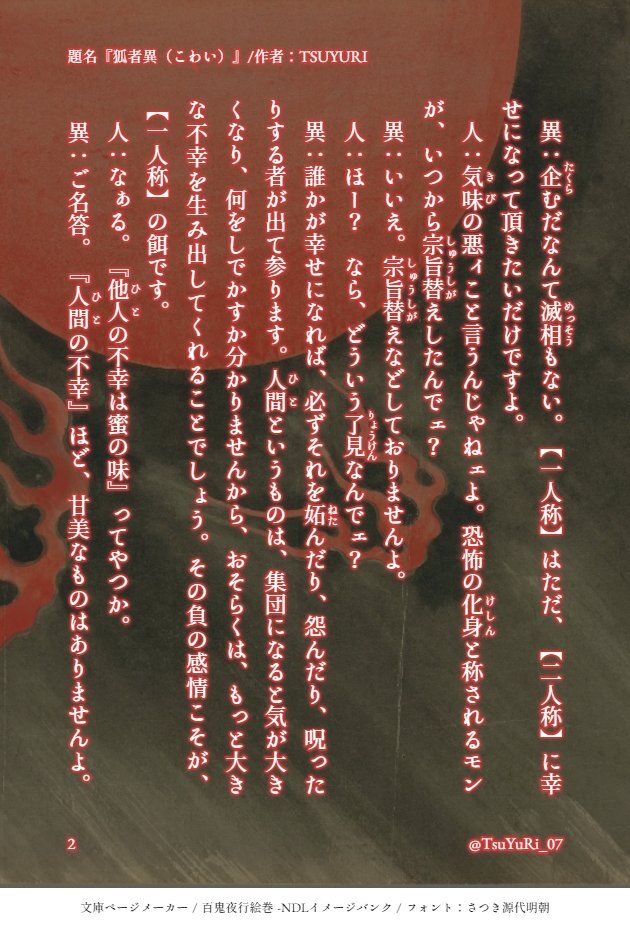 題名『狐者異（こわい）』/作者：TSUYURI
異：企むだなんて滅相もない。【一人称】はただ、【二人称】に幸
せになって頂きたいだけですよ。
人：気味の悪ィこと言うんじゃねェよ。恐怖の化身と称されるモン
が、いつから宗旨替えしたんでェ？
異：いいえ。宗旨替えなどしておりませんよ。
人：ほー？　なら、どういう了見なんでェ？
異：誰かが幸せになれば、必ずそれを妬んだり、怨んだり、呪った
りする者が出て参ります。人間というものは、集団になると気が大き
くなり、何をしでかすか分かりませんから、おそらくは、もっと大き
な不幸を生み出してくれることでしょう。その負の感情こそが、
【一人称】の餌です。
人：なぁる。『他人の不幸は蜜の味』ってやつか。
異：ご名答。『人間の不幸』ほど、甘美なものはありませんよ。
2
@TsuYuRi_07
文庫ページメーカー / 百鬼夜行絵巻 -NDLイメージバンク / フォント：さつき源代明朝